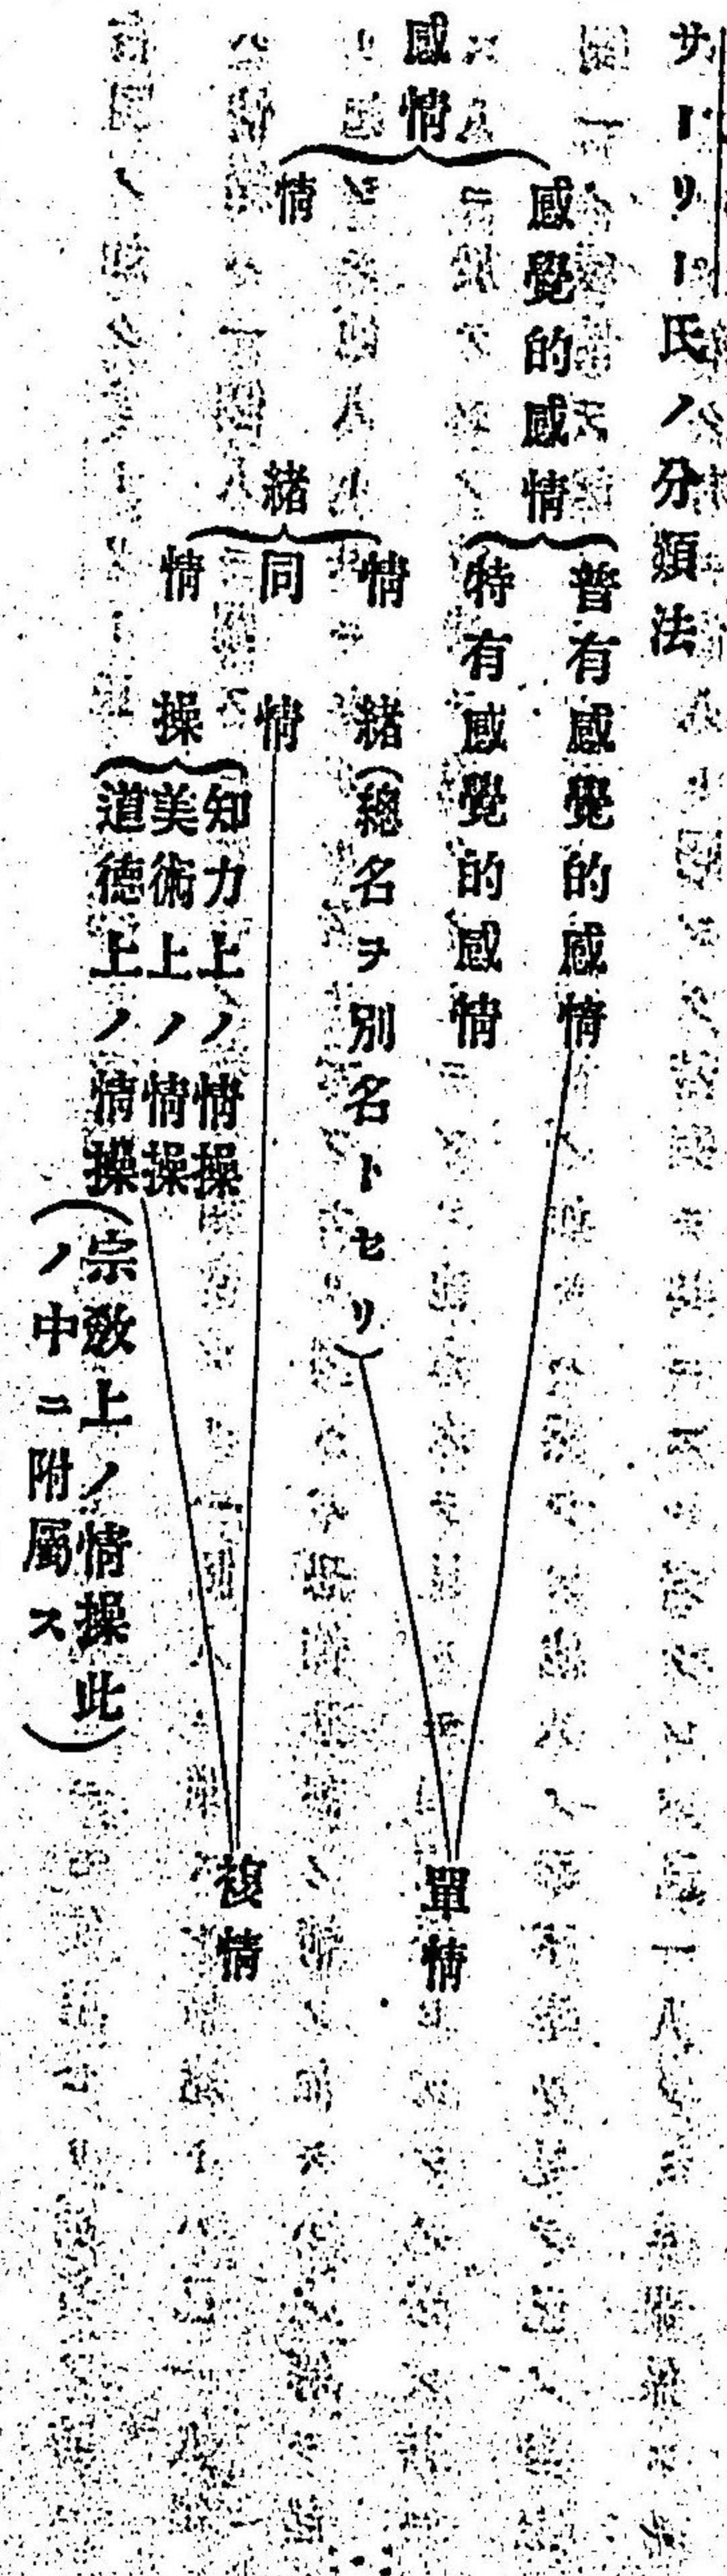 サーリー氏ノ分類法
感情
感覺的感情
普有感覺的感情
特有感覺的感情
情緖
情緖(總名ヲ別名トセリ)
同情
情操
知力上ノ情操
美術上ノ情操
道德上ノ情操
(宗敎上ノ情操此
ノ中ニ附屬ス)
單情
複情